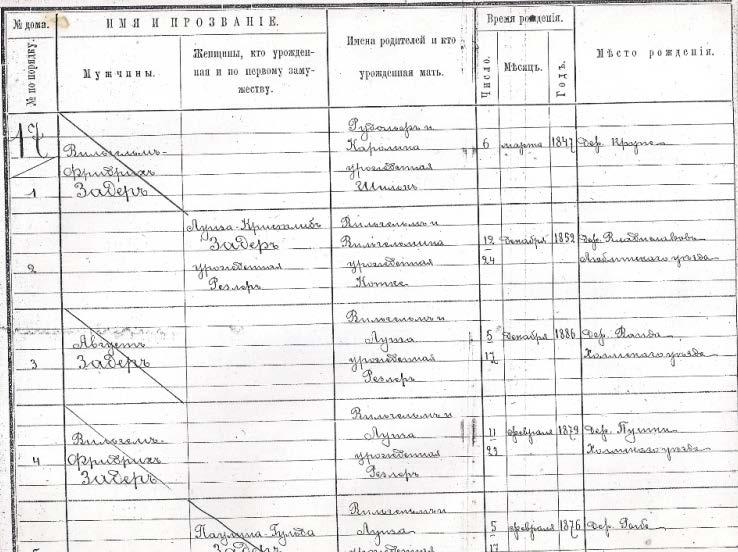 № дома.
№ по порядку.
ИМЯ И ПРОЗВАНІЕ.
Мужчины.
Женщины, кто урожден-
ная и по первому заму-
жеству.
Имена родителей и кто
урожденная мать.
Время рожденія.
Число.
Мѣсяцъ.
Годъ.
Мѣсто рожденія.
17
1
Вильгельмъ-
Фридрихъ
Задеръ
Рудольфъ и
Каролина
урожденная
6 марта 1847 дер.
2
Луиза-
Задеръ
урожденная
Реглоръ
Вильгельмъ и
Вильгелмина
урожденная
12 декабря 1852 дер.
24 уѣзда
3
Августъ
Задеръ
Вильгельмъ и
Луиза
урожденная
Реглоръ
5 декабря 1886 дер.
17 Холмскаго уѣзда
4
Вильгелъ-
Фридрихъ
Задеръ
Вильгельмъ и
Луиза
урожденная
Реглоръ
11 февраля 1879 дер.
22 Холмскаго уѣзда
Задеръ
Вильгельмъ и
Луиза
урожденная
5 февраля 1876 дер.
17